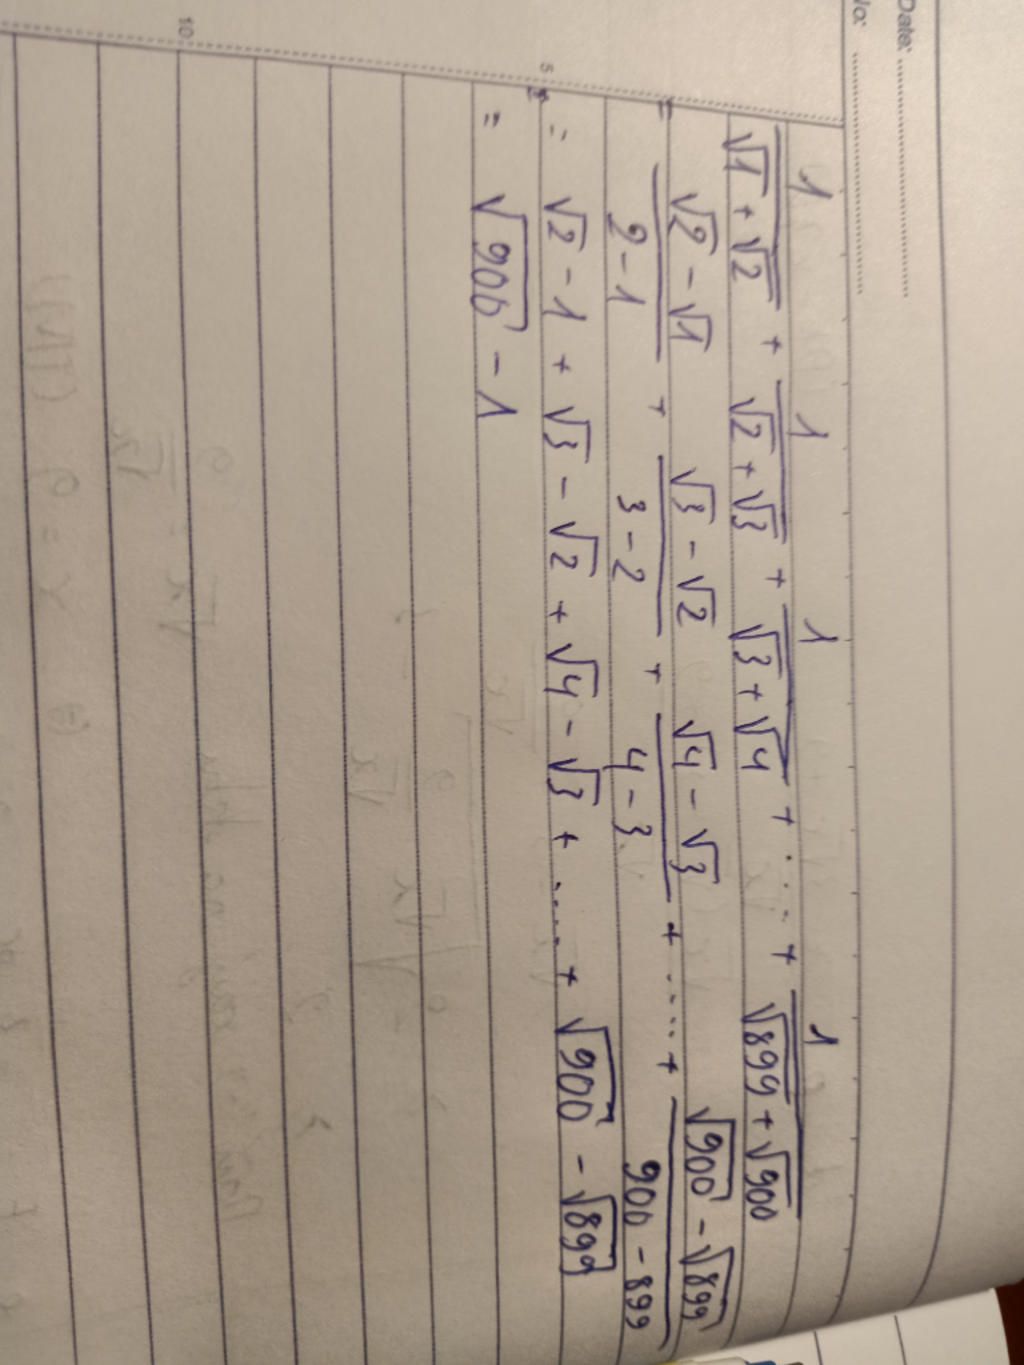 Date:
No:
1/(√1 + √2) + 1/(√2 + √3) + 1/(√3 + √4) + .... + 1/(√899 + √900)
= (√2 - √1)/(2 - 1) + (√3 - √2)/(3 - 2) + (√4 - √3)/(4 - 3) + ..... + (√900 - √899)/(900 - 899)
= √2 - 1 + √3 - √2 + √4 - √3 + ..... + √900 - √899
= √900 - 1
5
10